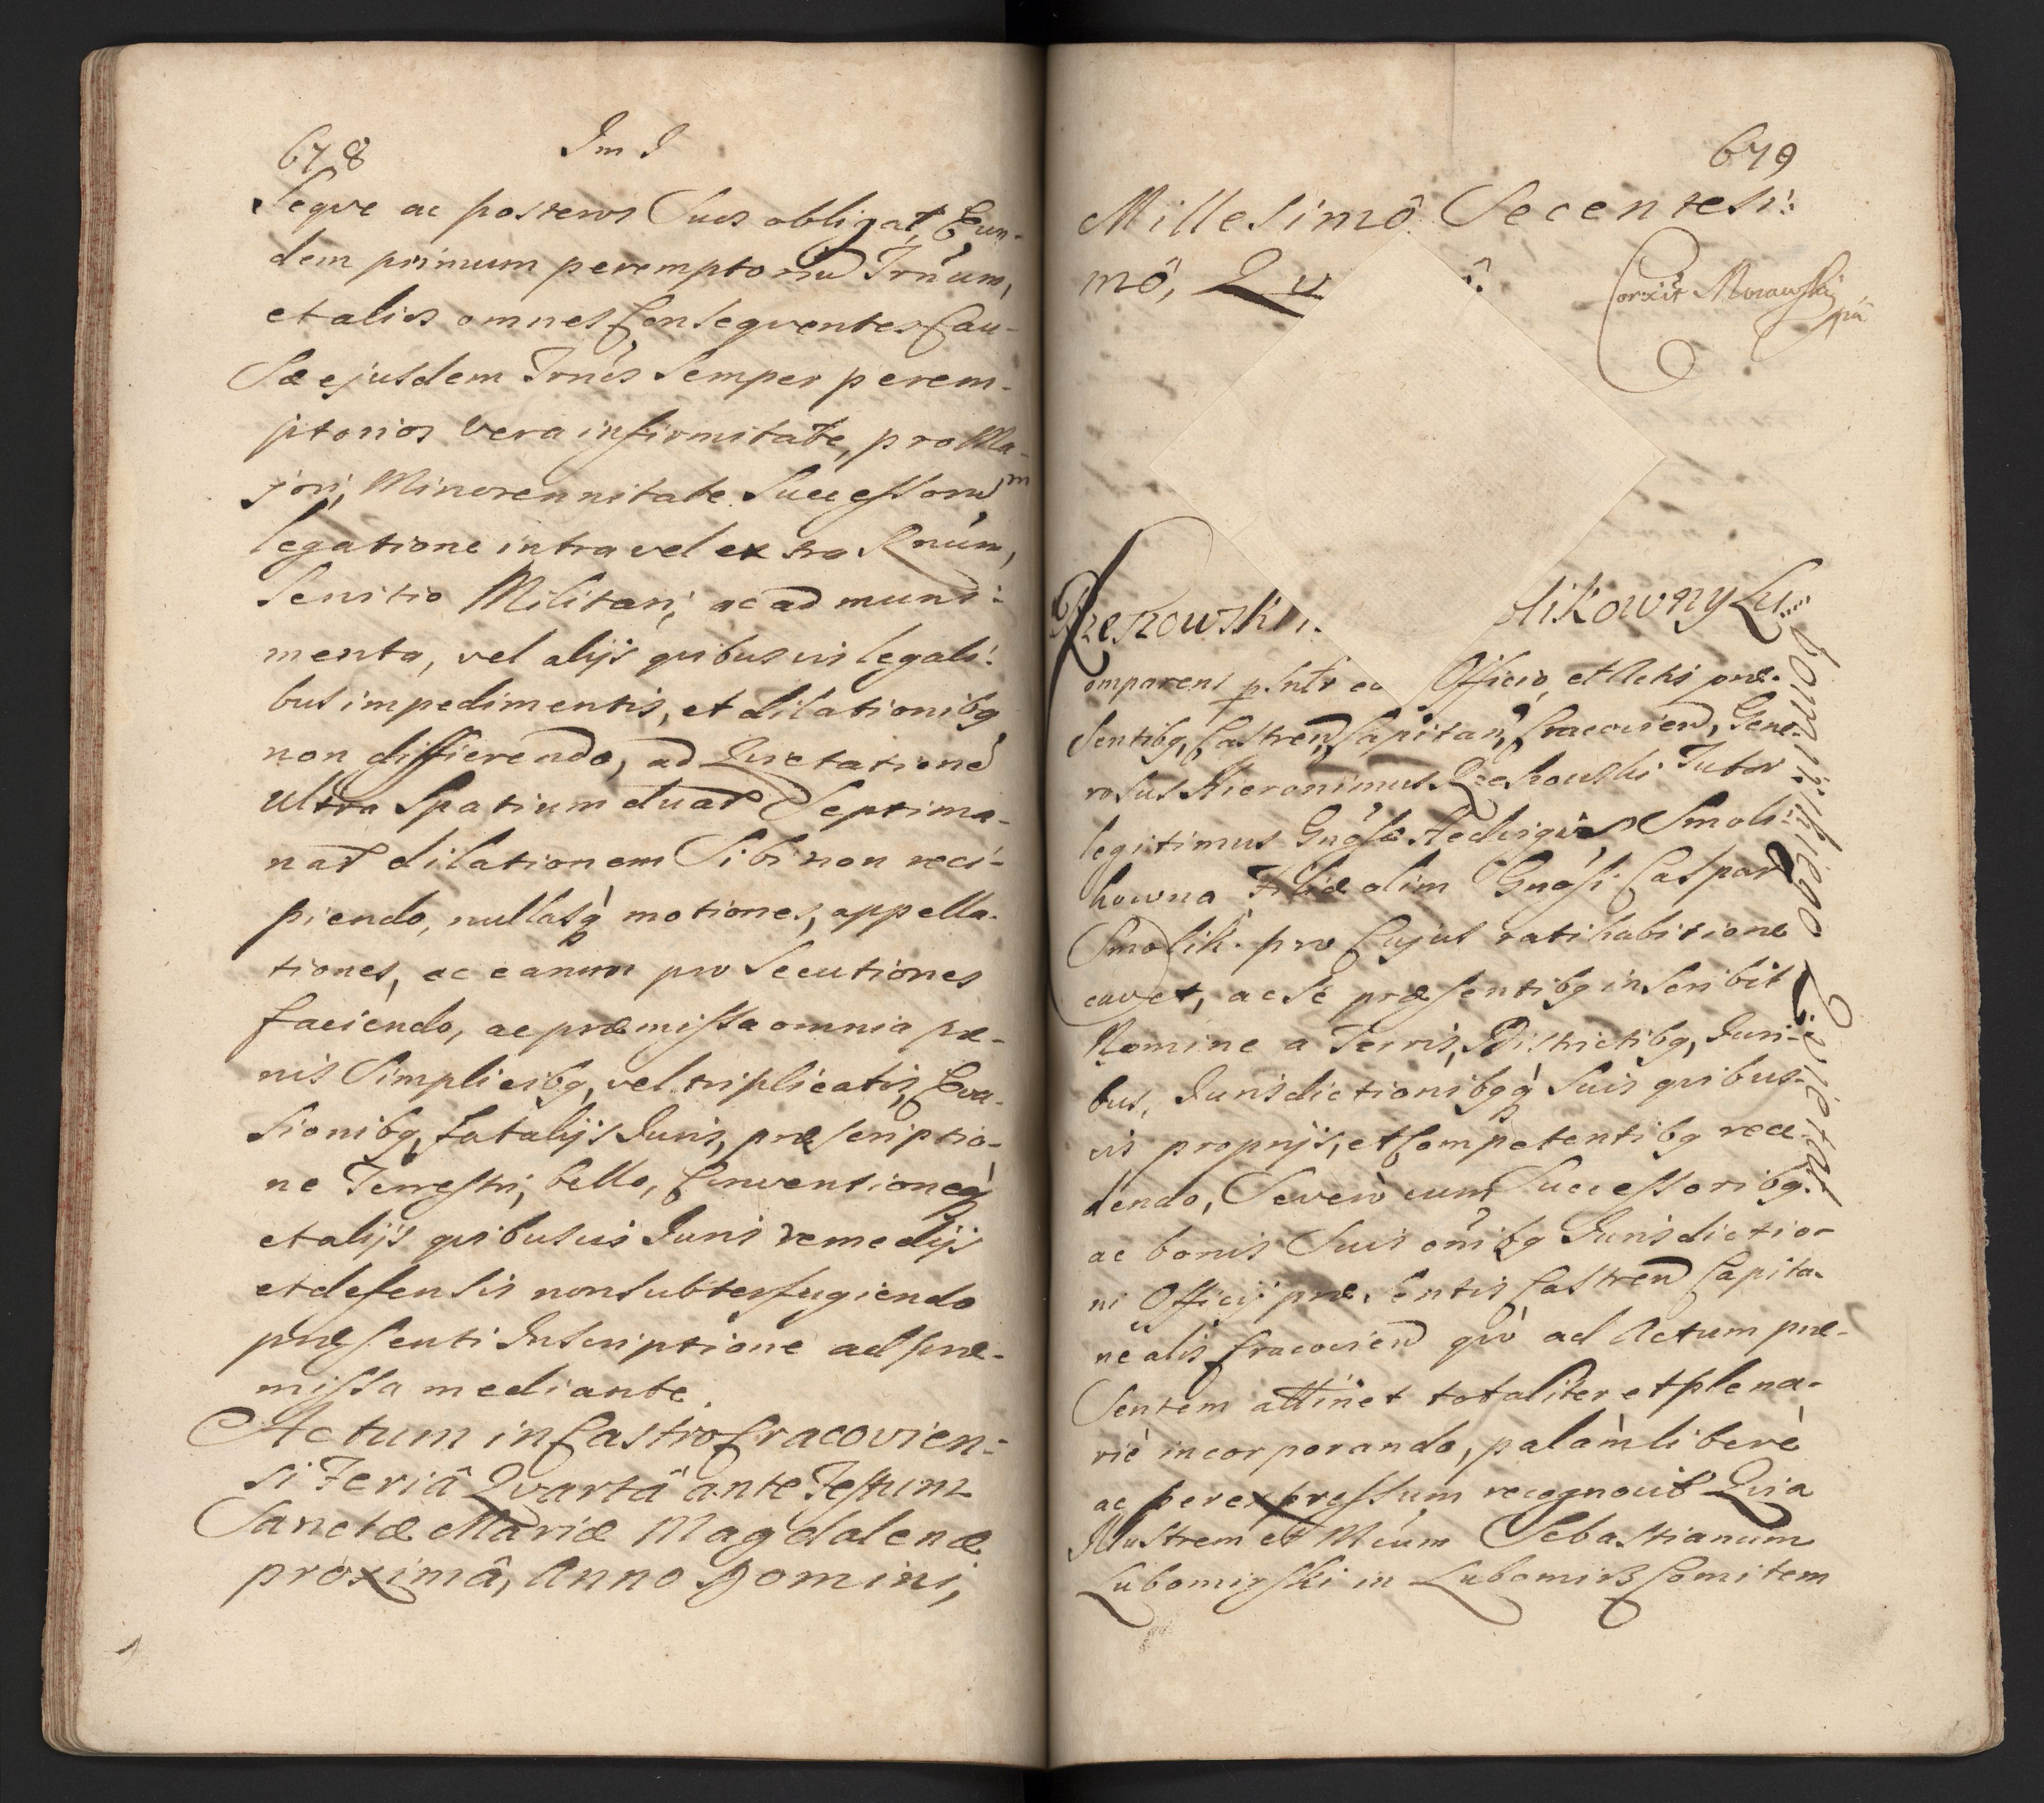 678
Im I
Seqve ac posteros Suos obligat, Eun-
dem primum peremptoriũ Trnum,
et alios omnes Conseqventes Cau-
sæ ejusdem Trnis Semper perem-
ptorios vera infirmitate, pro Ma-
jori, Minorennitate Successorum,
legatione intra vel extra Rnum,
Servitio Militari, ac ad muni:
menta, vel alijs qvibusvis legali:
bus impedimentis, et dilationibq
non differendo, ad Qvietatione
Ultra Spatium duar Septima-
nar dilationem Sibi non reci-
piendo, nullasq̀ motiones, appella-
tiones, ac earum prosecutiones
faciendo, ac præmissa omnia pæ-
nis Simplicibq, vel triplicatis, Eva-
sionibq, fatalijs Juris, præscriptio-
ne Terrestri, bello, Conventioneq̀
et alijs qvibusvis Juris remedijs
et defensis non subterfugiendo
præsenti Inscriptione ad præ-
missa mediante.
Actum in Castro Cracovien-
si Feriâ Qvartâ ante Festum
Sanctæ Mariæ Magdalenæ
proximâ, Anno Domini,
679
Millesimô Secentesi:
mô, Qv ô.
Corxit Morawski
pa
Rzeszowski olikowny Lu
bomirskiego Qvietat
omparens pSntr co Officio, et Actis præ-
sentibq, Castren, Capitan, Cracovien, Gene-
rosus Hieronimus Rzeszowski Tutor
legitimus Gnosæ Hedvigis Smoli-
kowna Filiæ olim Gnosi Caspar
Smolik. pro Cujus ratihabitione
cavet, ac Se præsentibq inscribit
Nomine a Terris, Districtibq, Juri-
bus, Jurisdictionibqq̀ Suis qvibus-
vis proprijs, et Competentibq rece-
dendo, Severò cum Successoribq.
ac bonis Suis omibq Jurisdictio-
ni Officij præsentis Castren Capita-
nealis Cracovien qvò ad Actum præ-
sentem attinet totaliter et plena-
riè incorporando, palàm liberè
ac per expressum recognovit Qvia
Illustrem et Mcum Sebastianum
Lubomirski in Lubomirz Comitem